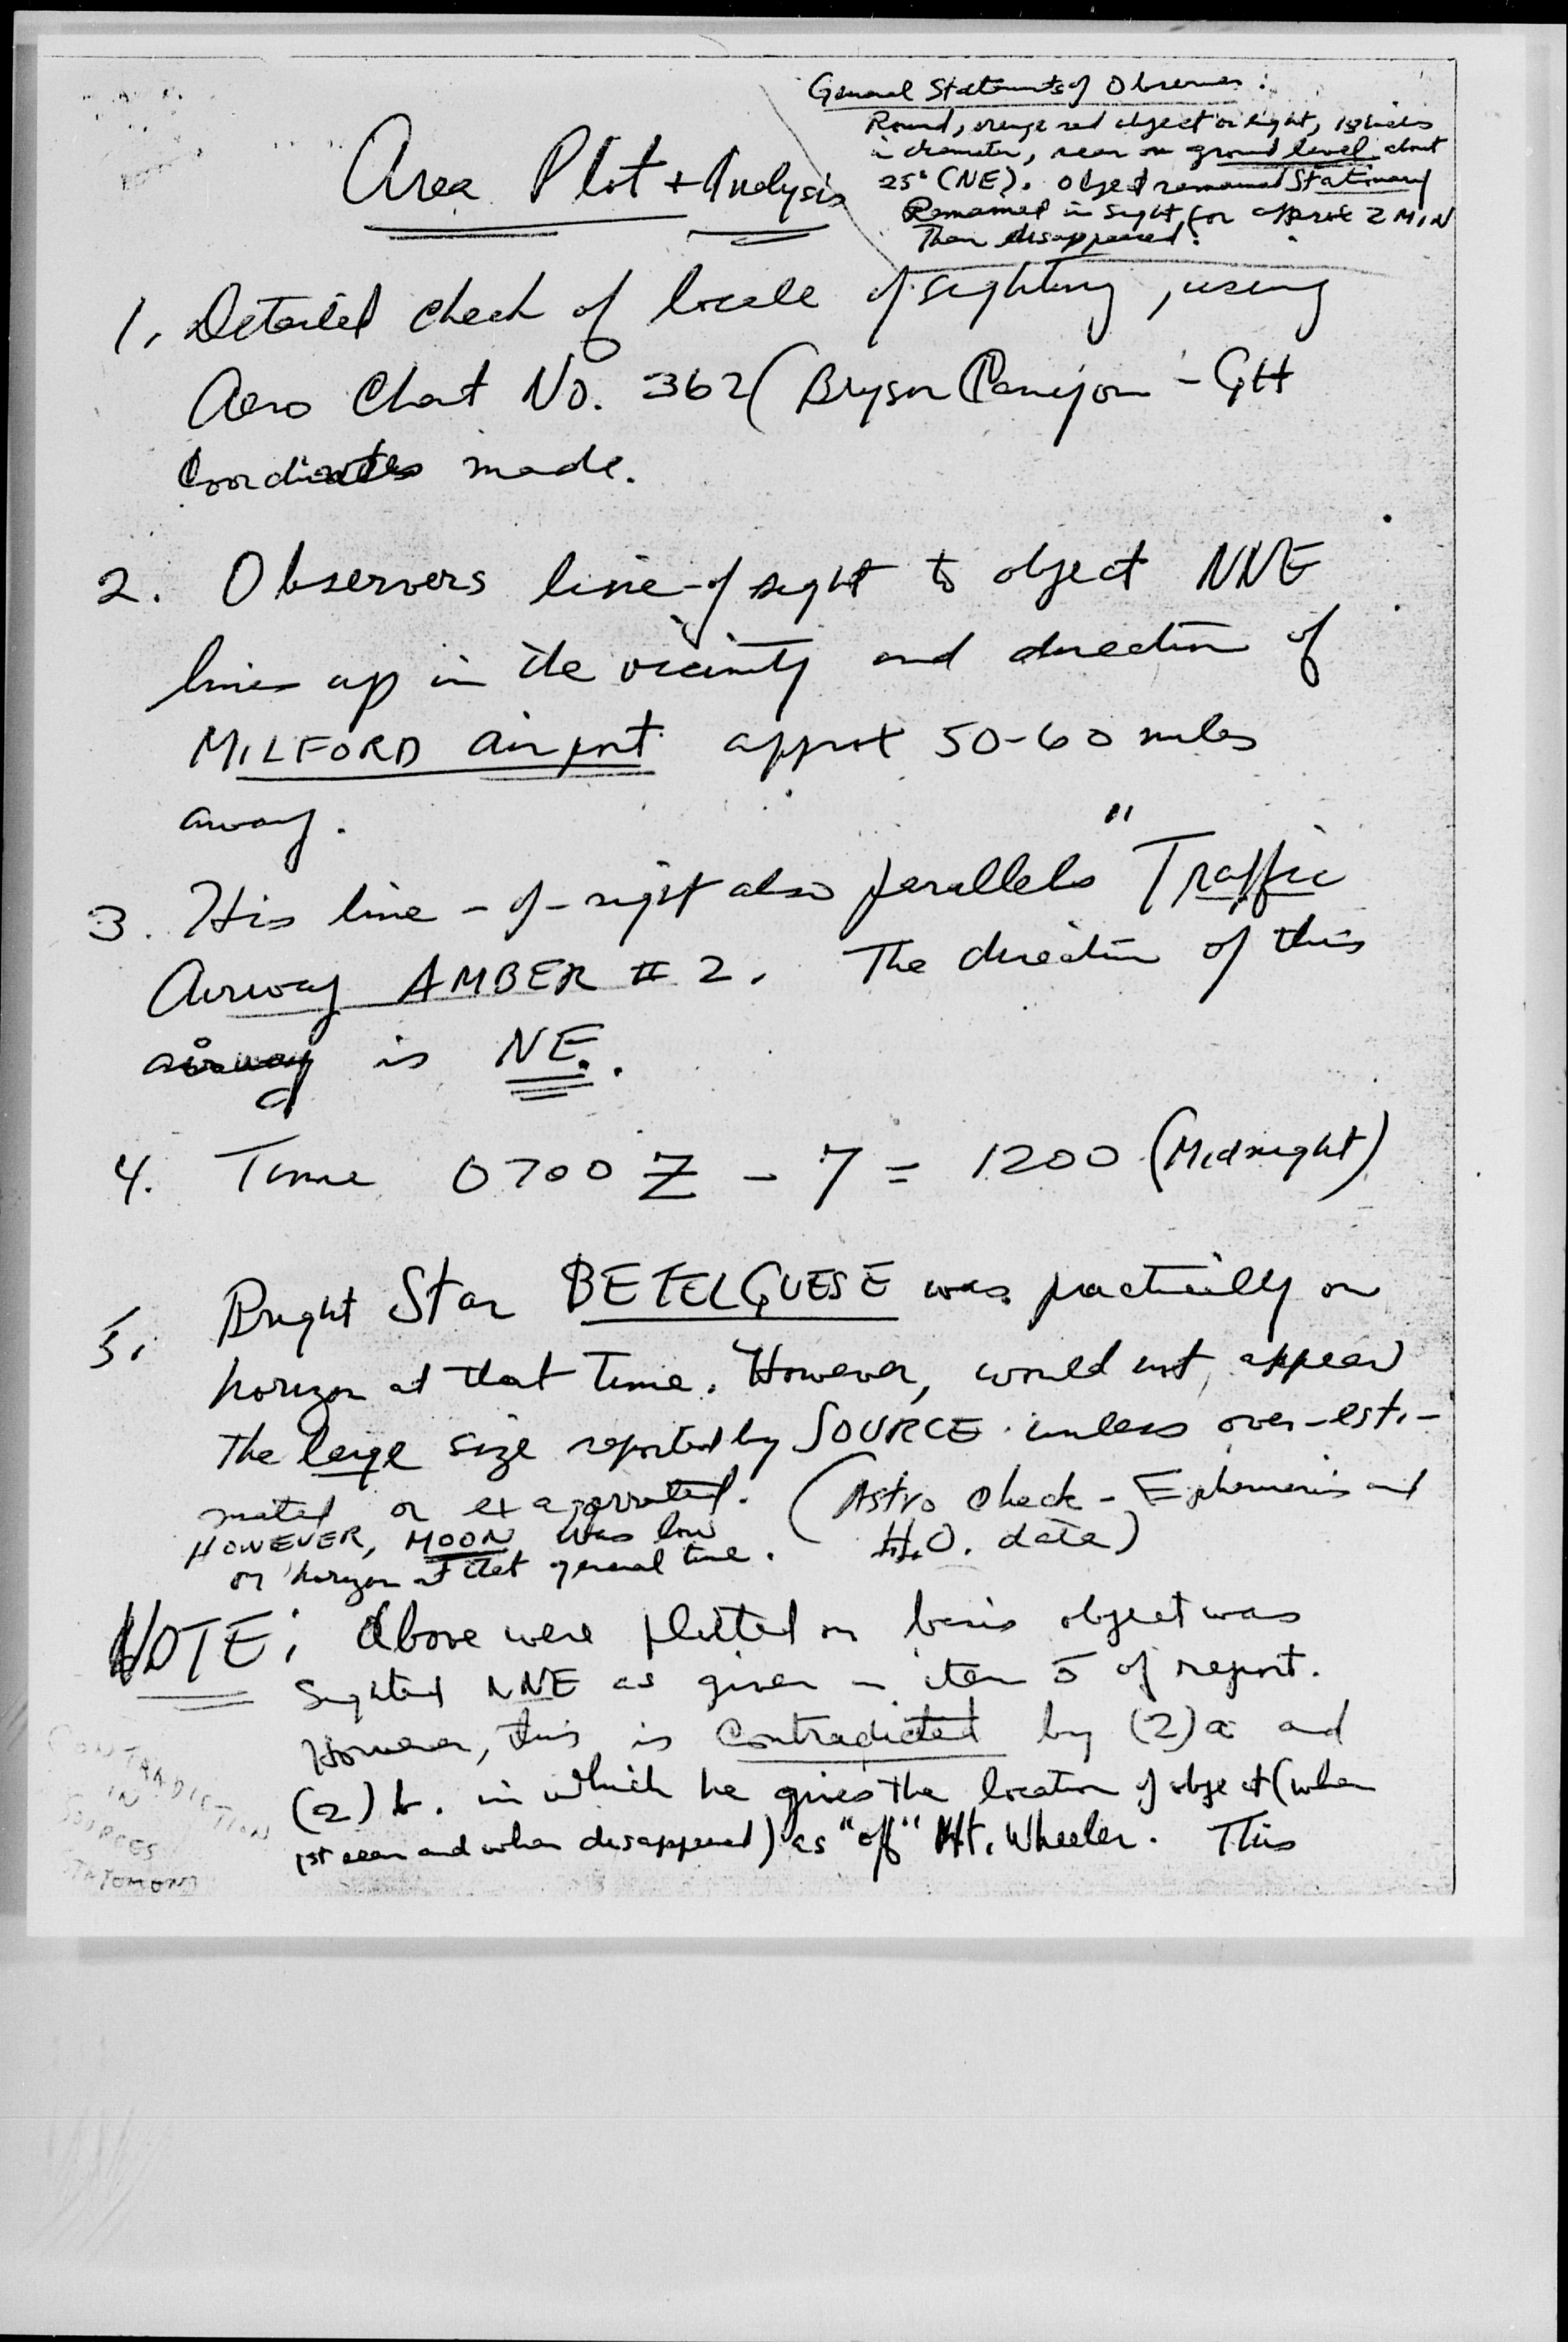 General Statements of Observer:
Round, orange red object or light, 18 inches
in diameter, seen on ground level about
25° (NE). Object remained Stationary
Remained in sight for approx 2 MIN
Then disappeared.
Area Plot + Analysis
1. Detailed check of locale of sighting, using
Aero Chart No. 362 (Bryson Canyon - GH
Coordinates made.
2. Observers line-of sight to object NNE
lines up in the vicinity and direction of
MILFORD airport approx 50-60 miles
away.
3. His line-of-sight also parallels "Traffic
Airway AMBER # 2. The direction of this
airway is NE.
4. Time 0700 Z - 7 = 1200 (Midnight)
5. Bright Star BETELGUESE was practically on
horizon at that time. However, would not appear
the large size reported by SOURCE unless over-esti-
mated or exagerrated. (Astro Check - Ephemeris and
H.O. data)
HOWEVER, MOON was low
on horizon at that general time.
NOTE: Above were plotted on basis object was
sighted NNE as given in item 5 of report.
However, this is contradicted by (2)a and
(2) b. in which he gives the location of object (when
1st seen and when disappeared) as "off" Mt. Wheeler. This
CONTRADICTION
IN
SOURCES
STATEMENT